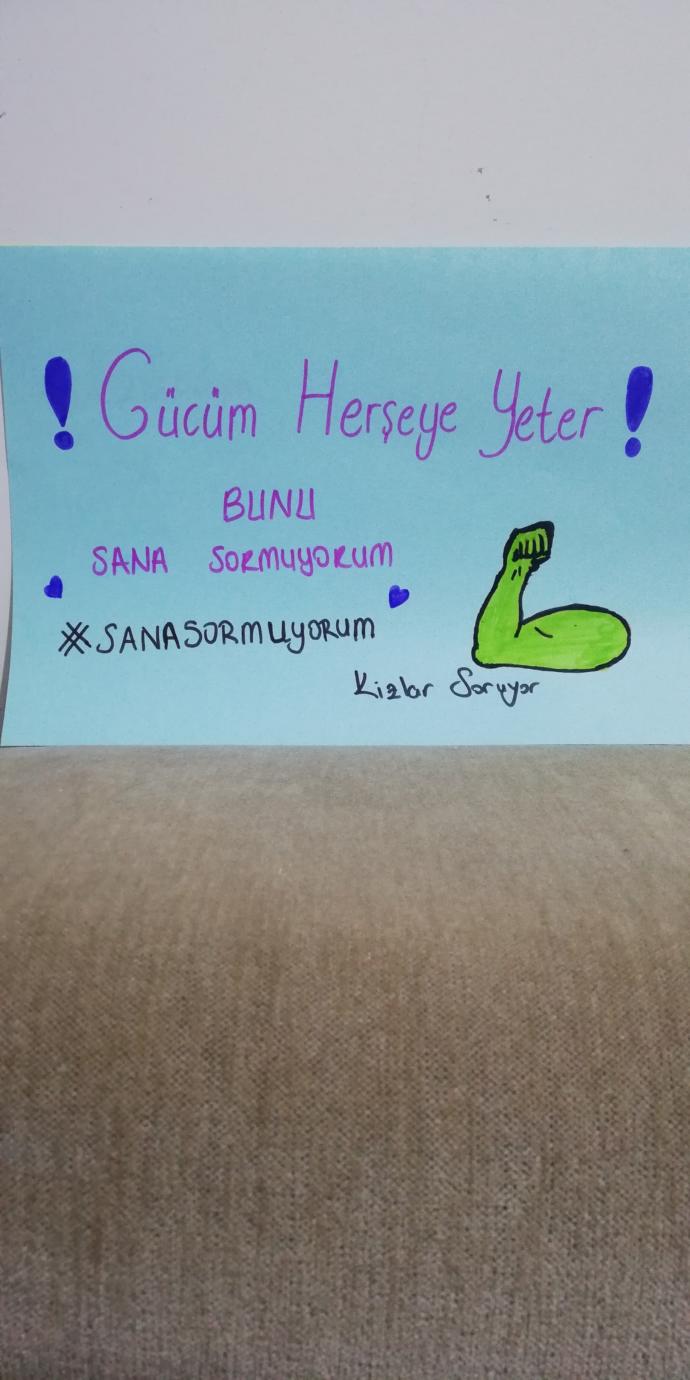 ! Gücüm Herşeye Yeter !
BUNU
SANA SORMUYORUM
#SANASORMUYORUM
Kizlar Soruyor